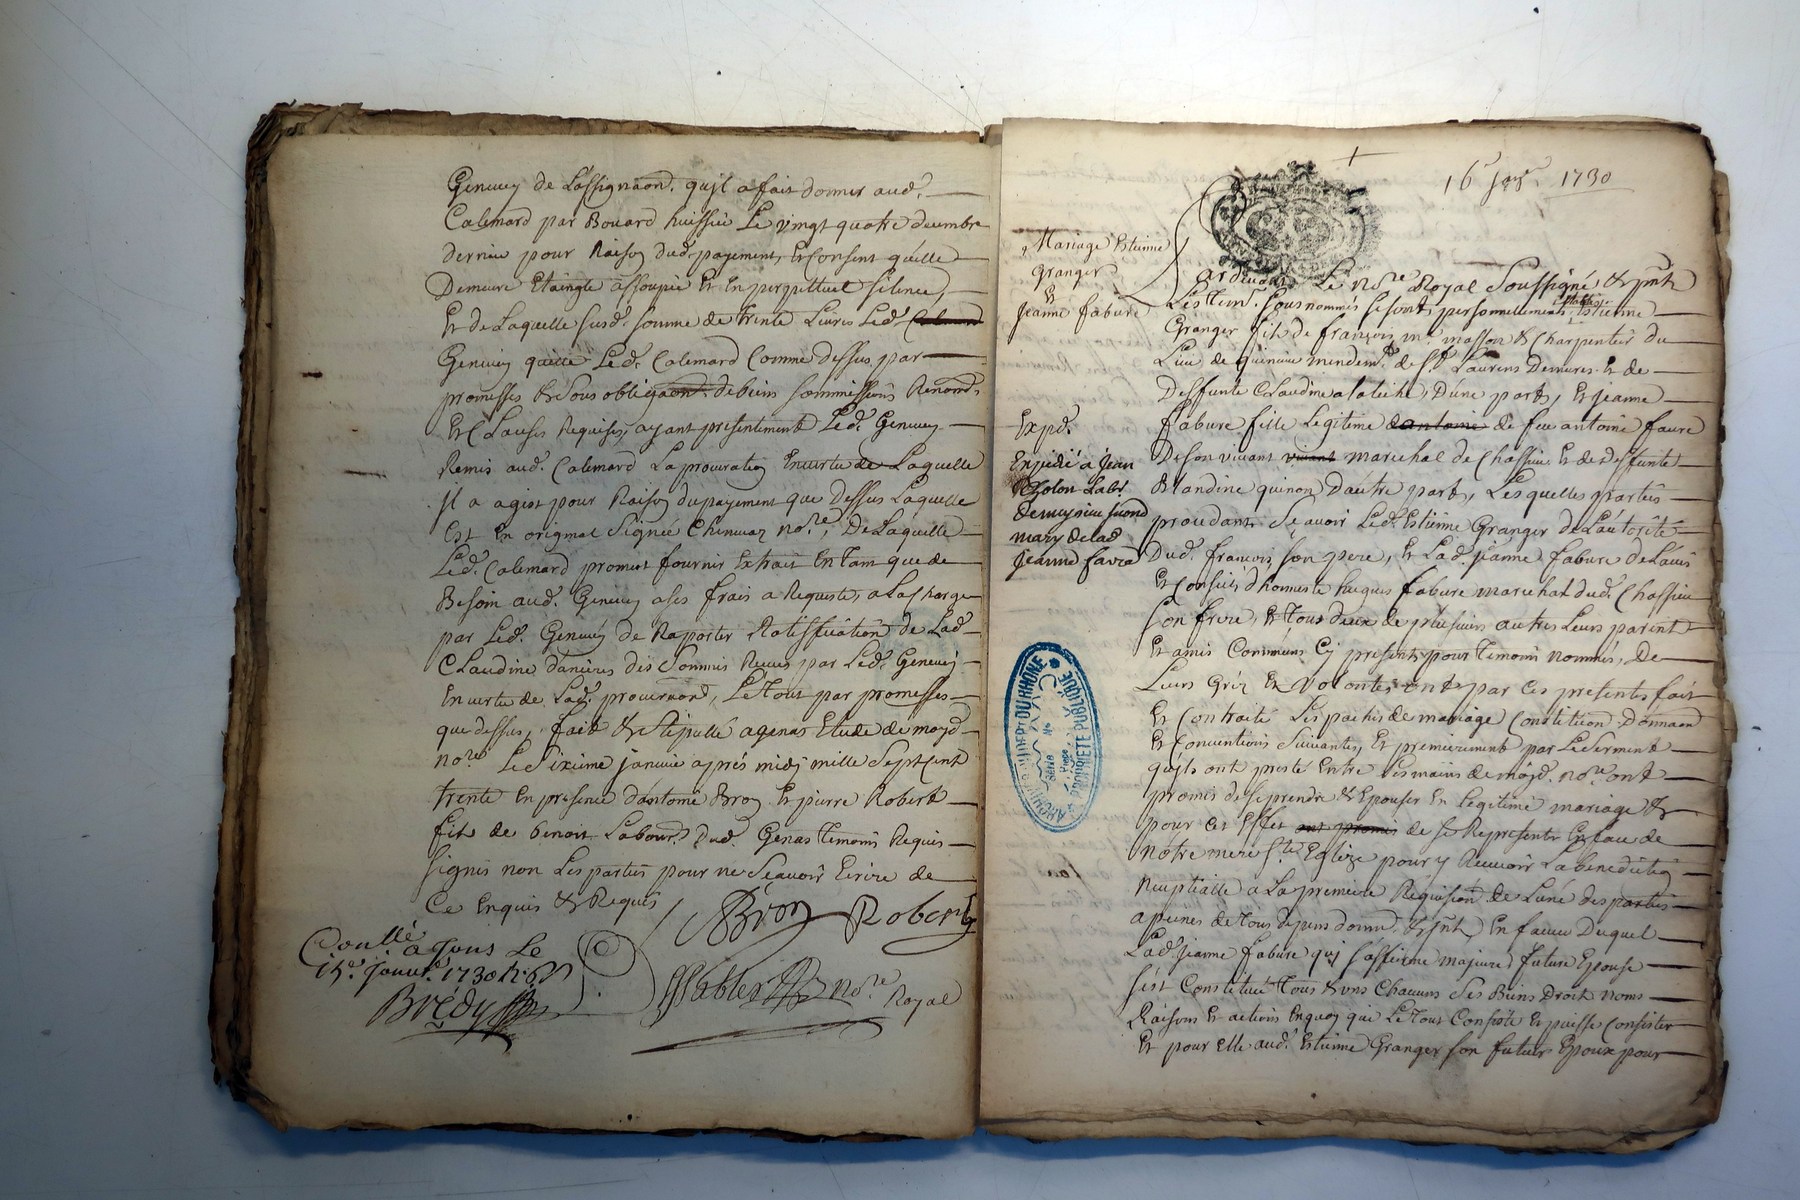 Genevey de Lassignaon. qu'jl a fait donner aud.
Calemard par Bouard huissier Le vingt quatre decembre
dernier pour Raison dud. payement, Et Consent qu'elle
Demeure Etaingte assoupie Et En perpettuel silence,
Et de Laquelle susd. somme de trente Livres Led. Calemard
Genevey quitte Led. Calemard Comme dessus par
promesses & sous obligaon. de biens soommissions Renonds.
Et Clauses Requises, ayant presentement Led. Genevey
Remis aud. Calemard La procuration Envertu de Laquelle
Jl a agist pour Raison du payement que dessus Laquelle
Est En original signée Chenuaz no.re, De Laquelle
Led. Calemard promet fournir Extrait En Tam que de
Besoin aud. Genevey a ses frais a Requeste, a La Charge
par Led. Genevey de Raporter Ratiffication de Lad.
Claudine d'anieres des sommes Receues par Led. Genevey
En vertu de Lad. procuraond, Le Tout par promesses
que dessus, fait & stipullé a genas Etude de moyd.
no.re Le sixieme janvier aprés midj mille sept cent
trente En presence d'antoine Bron Et pierre Robert
fils de benoit Labour. dud. Genas Temoins Requis
signés non Les parties pour ne sçavoir Ecrire de
Ce Enquis & Requis
Bron Robert
Con.llé a Jons Le
15.e Janv.r 1730
Brédy
no.re Royal
16 janr. 1730
Mariage Estienne
Granger
Et
Jeanne fabure
Pardevant Le No.re Royal Soussigné, & pnt
Les Tem. sousnommés se sont personnellement Establis Estienne
Granger fils de françois m.e masson & Charpentier du
Lieu de mendem.t de S.t Laurens Demures Et de
Deffunte Claudine a Latiche, D'une part, Et jeanne
fabure fille Legitime dantoine de feu antoine faure
De son vivant vivant marechal de Chassieu Et de deffunte
Blandine quinon d'autre part, Lesquelles parties
proceddant sçavoir Led. Estienne Granger de L'autorité
Dud. françois son pere, Et Lad. jeanne fabure De L'avis
Et Conseils d'honneste hugues fabure marechal dud. Chassieu
son frere, Et Tous deux de plusieurs autres Leurs parent
Et amis Communs Cy presents pour Temoins nommés, De
Leurs Gréz Et Volontés ont par Ces presentes fait
Et Contraité Les pachés de mariage Constitution Donnaon
Et Conventions suivantes, Et premierement par Le serment
qu'jls ont presté Entre Les mains de moyd. no.re ont
promis de se prendre & Epouser En Legitime mariage &
pour Cet Effet ont promis de se Representer En face de
notre mere S.te Eglize pour y Recevoir La benediction
nuptialle a La premiere Requision de L'une des parties
a peines de Tous depens domm. & jnt, En faveur Duquel
Lad. jeanne fabure quj s'affirme majeure future Epouse
s'est Constituée Tous & uns Chacuns ses Biens Droit noms
Raisons Et actions En quoy que Le Tout Consiste Et puisse Consister
Et pour Elle aud. Estienne Granger son futur Epoux pour
Expd.
Expedié a jean
Cholon Lab.r
de meyzieu second
mary de lad.
jeanne favre
PROPRIETE PUBLIQUE